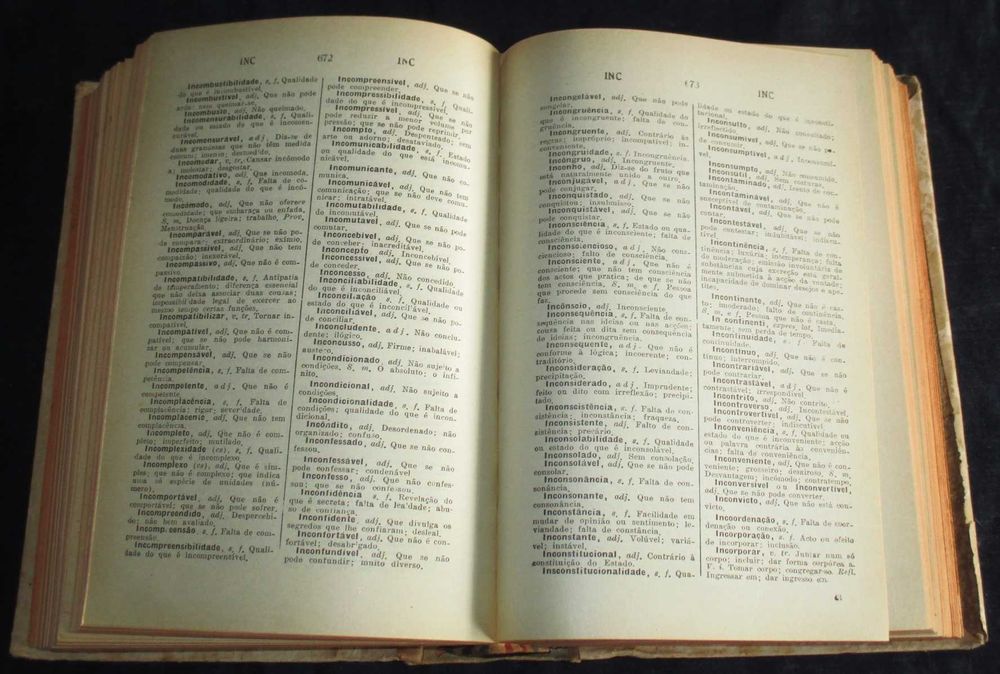 INC 672 INC
Incombustibilidade, s, f. Qualidade
do que é incombustivel.
Incombustivel, adj. Que não pode
arder nem queimar-se.
Incombusto, adj. Não queimado.
Incomensurabilidade, s, f. Quali-
dade ou estado do que é incomen-
surável.
Incomensurável, adj. Diz-se de
duas grandezas que não têm medida
comum; imenso; desmedido.
Incomodar, v, tr, Causar incómodo
a; molestar; desgostar.
Incomodativo, adj, Que incomoda.
Incomodidade, s, f. Falta de co-
modidade; qualidade do que é incó-
modo.
Incómodo, adj, Que não oferece
comodidade; que embaraça ou enfada,
S, m, Doença ligeira; trabalho, Prov,
Menstruação.
Incomparável, adj, Que não po-
de comparar; extraordinário; exímio.
Incompassível, adj, Que não tem
compaixão; inexorável.
Incompassivo, adj, Que não é com-
passivo.
Incompatibilidade, s, f, Antipatia
de temperamento; diferença essencial
que não deixa associar duas cousas;
impossibilidade legal de exercer ao
mesmo tempo certas funções,
Incompatibilizar, v, tr, Tornar in-
compatível,
Incompatível, adj, Que não é com-
patível; que se não pode harmoni-
zar ou acumular.
Incompensável, adj, Que se não
pode compensar.
Incompetência, s, f, Falta de com-
petência.
Incompetente, adj, Que não é
competente
Incomplacência, s, f, Falta de
complacência; rigor; severidade,
Incomplacente, adj, Que não tem
complacência,
Incompleto, adj, Que não é com-
pleto; imperfeito; mutilado,
Incomplexidade (cs), s, f, Quali-
dade do que é incomplexo,
Incomplexo (cs), adj, Que é sim-
ples; que não é complexo; que indica
uma só espécie de unidades (nú-
mero).
Incomportável, adj, Que não é
comportável; que se não pode sofrer,
Incompreendido, adj, Despercebi-
do; não bem avaliado,
Incompreensão, s, f, Falta de com-
preensão,
Incompreensibilidade, s, f, Quali-
dade do que é incompreensível,
Incompreensível, adj, Que se não
pode compreender,
Incompressibilidade, s, f, Quali-
dade do que é incompressivel
Incompressivel, adj, Que se não
pode reduzir a menor volume por
pressão; que se não pode reprimir
Incompto, adj, Despenteado; sem
arte ou adorno; desataviado,
Incomunicabilidade, s, f, Estado
ou qualidade do que está incomu-
nicável,
Incomunicante, adj, Que não co-
munica,
Incomunicável, adj, Que não tem
comunicação; que se não deve comu-
nicar; intratável,
Incomutabilidade, s, f, Qualidade
de incomutável,
Incomutavel, adj, Que se não pode
comutar,
Inconcebivel, adj, Que se não po-
de conceber; inacreditável,
Inconcepto, adj, Inconcebível,
Inconcessível, adj, Que se não po-
de conceder,
Inconcesso, adj, Não concedido
Inconciliabilidade, s, f, Qualidade
do que é inconciliável,
Inconciliação, s, f, Qualidade ou
estado do que é inconciliável
Inconciliável, adj, Que se não po-
de conciliar,
Inconcludente, adj, Não conclu-
dente; ilógico,
Inconcusso, adj, Firme; inabalável;
austero,
Incondicionado, adj, Não sujeito a
condições, S, m, O absoluto; o infi-
nito,
Incondicional, adj, Não sujeito a
condições,
Incondicionalidade, s, f, Falta de
condições; qualidade do que é incon-
dicional
Incôndito, adj, Desordenado; não
organizado; confuso,
Inconfessado, adj, Que se não con-
fessou,
Inconfessável, adj, Que se não
pode confessar; condenável
Inconfesso, adj, Que não confes-
sou; que se não confessou,
Inconfidência s, f, Revelação do
que é secreta; falta de lealdade; abu-
so de confiança,
Inconfidente, adj, Que divulga os
segredos que lhe confiaram; desleal.
Inconfortável, adj, Que não é con-
fortável; desabrigado,
Inconfundível, adj, Que se não
pode confundir; muito diverso,
INC 673 INC
Incongelável, adj, Que não pode
congelar,
Incongruência, s, f, Qualidade do
que é incongruente; falta de con-
gruência,
Incongruente, adj, Contrário às
regras; impróprio; incompatível; in-
conveniente,
Incongruidade, s, f, Incongruência,
Incôngruo, adj, Incongruente,
Inconho, adj, Diz-se do fruto que
está naturalmente unido a outro,
Inconjugável, adj, Que se não
pode conjugar,
Inconquistado, adj, Que se não
conquistou; insubmisso,
Inconquistável, adj, Que se não
pode conquistar,
Insonsciência, s, f, Estado ou qua-
lidade do que é inconsciente; falta de
consciência,
Insonsciencioso, adj, Não cons-
ciencioso; falto de consciência,
Inconsciente, adj, Que não é
consciente; que não tem consciência
dos actos que pratica; de que não se
tem consciência, S, m, e f, Pessoa
que procede sem consciência do que
faz,
Incônscio, adj, Inconsciente
Inconsequência, s, f, Falta de con-
sequência nas ideias ou nas acções;
cousa feita ou dita sem consequência
de ideias; incongruência,
Inconsequente, adj, Que não é
conforme à lógica; incoerente; con-
traditório,
Inconsideração, s, f, Leviandade;
precipitação,
Inconsiderado, adj, Imprudente;
feito ou dito com irreflexão; precipi-
tado,
Inconsistência, s, f, Falta de con-
sistência; inconstância; fraqueza,
Inconsistente, adj, Falto de con-
sistência; precário,
Inconsolabilidade, s, f, Qualidade
ou estado do que é inconsolável,
Inconsolado, adj, Sem consolação,
Inconsolável, adj, Que se não pode
consolar,
Inconsonância, s, f, Falta de con-
sonância,
Inconsonante, adj, Que não tem
consonância,
Inconstância, s, f, Facilidade em
mudar de opinião ou sentimento; le-
viandade; falta de constância,
Inconstante, adj, Volúvel; variá-
vel; instável,
Inconstitucional, adj, Contrário à
constituição do Estado.
Insconstitucionalidade, s, f, Qua-
lidade ou estado do que é inconsti-
tucional,
Inconsulto, adj, Não consultado;
irreflectido,
Inconsumivel, adj, Que se não
consumir,
Inconsumptivo, adj, Inconsumí-
vel,
Inconsumpto, adj, Não consumido,
Inconsutil, adj, Sem costuras,
Incontaminado, adj, Isento de con-
taminação,
Incontaminável, adj, Que não é
susceptível de contaminação,
Incontável, adj, Que se não pode
contar,
Incontestável, adj, Que se não
pode contestar; indubitável; indiscu-
tível
Incontinência, s, f, Falta de con-
tinência; luxúria; intemperança; falta
de moderação; emissão involuntária de
substâncias cuja excreção está geral-
mente submetida à acção da vontade;
incapacidade de dominar desejos e ape-
tites,
Incontinente, adj, Que não é cas-
to; imoderado; falto de continência,
S, m, e f, Pessoa que não é casta,
In continenti, expres, lat, Imedia-
tamente, sem perda de tempo,
Incontinuidade, s, f, Falta de
continuidade,
Incontínuo, adj, Que não é con-
tínuo; interrompido,
Incontrariável, adj, Que se não
pode contrariar,
Incontrastável, adj, Que não é
contrastável; irrespondível,
Incontrito, adj, Não contrito
Incontroverso, adj, Incontestável,
Incontrovertível, adj, Que se não
pode controverter; indiscutível
Inconveniência, s, f, Qualidade ou
estado do que é inconveniente; acção
ou palavra contrária às conveniên-
cias; falta de conveniência,
Inconveniente, adj, Que não é con-
veniente; grosseiro; desairoso, S, m,
Desvantagem; incómodo; contratempo,
Inconversivel ou Inconvertivel,
adj, Que se não pode converter,
Inconvicto, adj, Que não está con-
victo,
Incoordenação, s, f, Falta de coor-
denação ou conexão,
Incorporação, s, f, Acto ou afeito
de incorporar; inclusão,
Incorporar, v. tr. Juntar num só
corpo; incluir; dar forma corpórea a,
V. i. Tomar corpo; congregar-se Refl.
Ingressar em; dar ingresso em